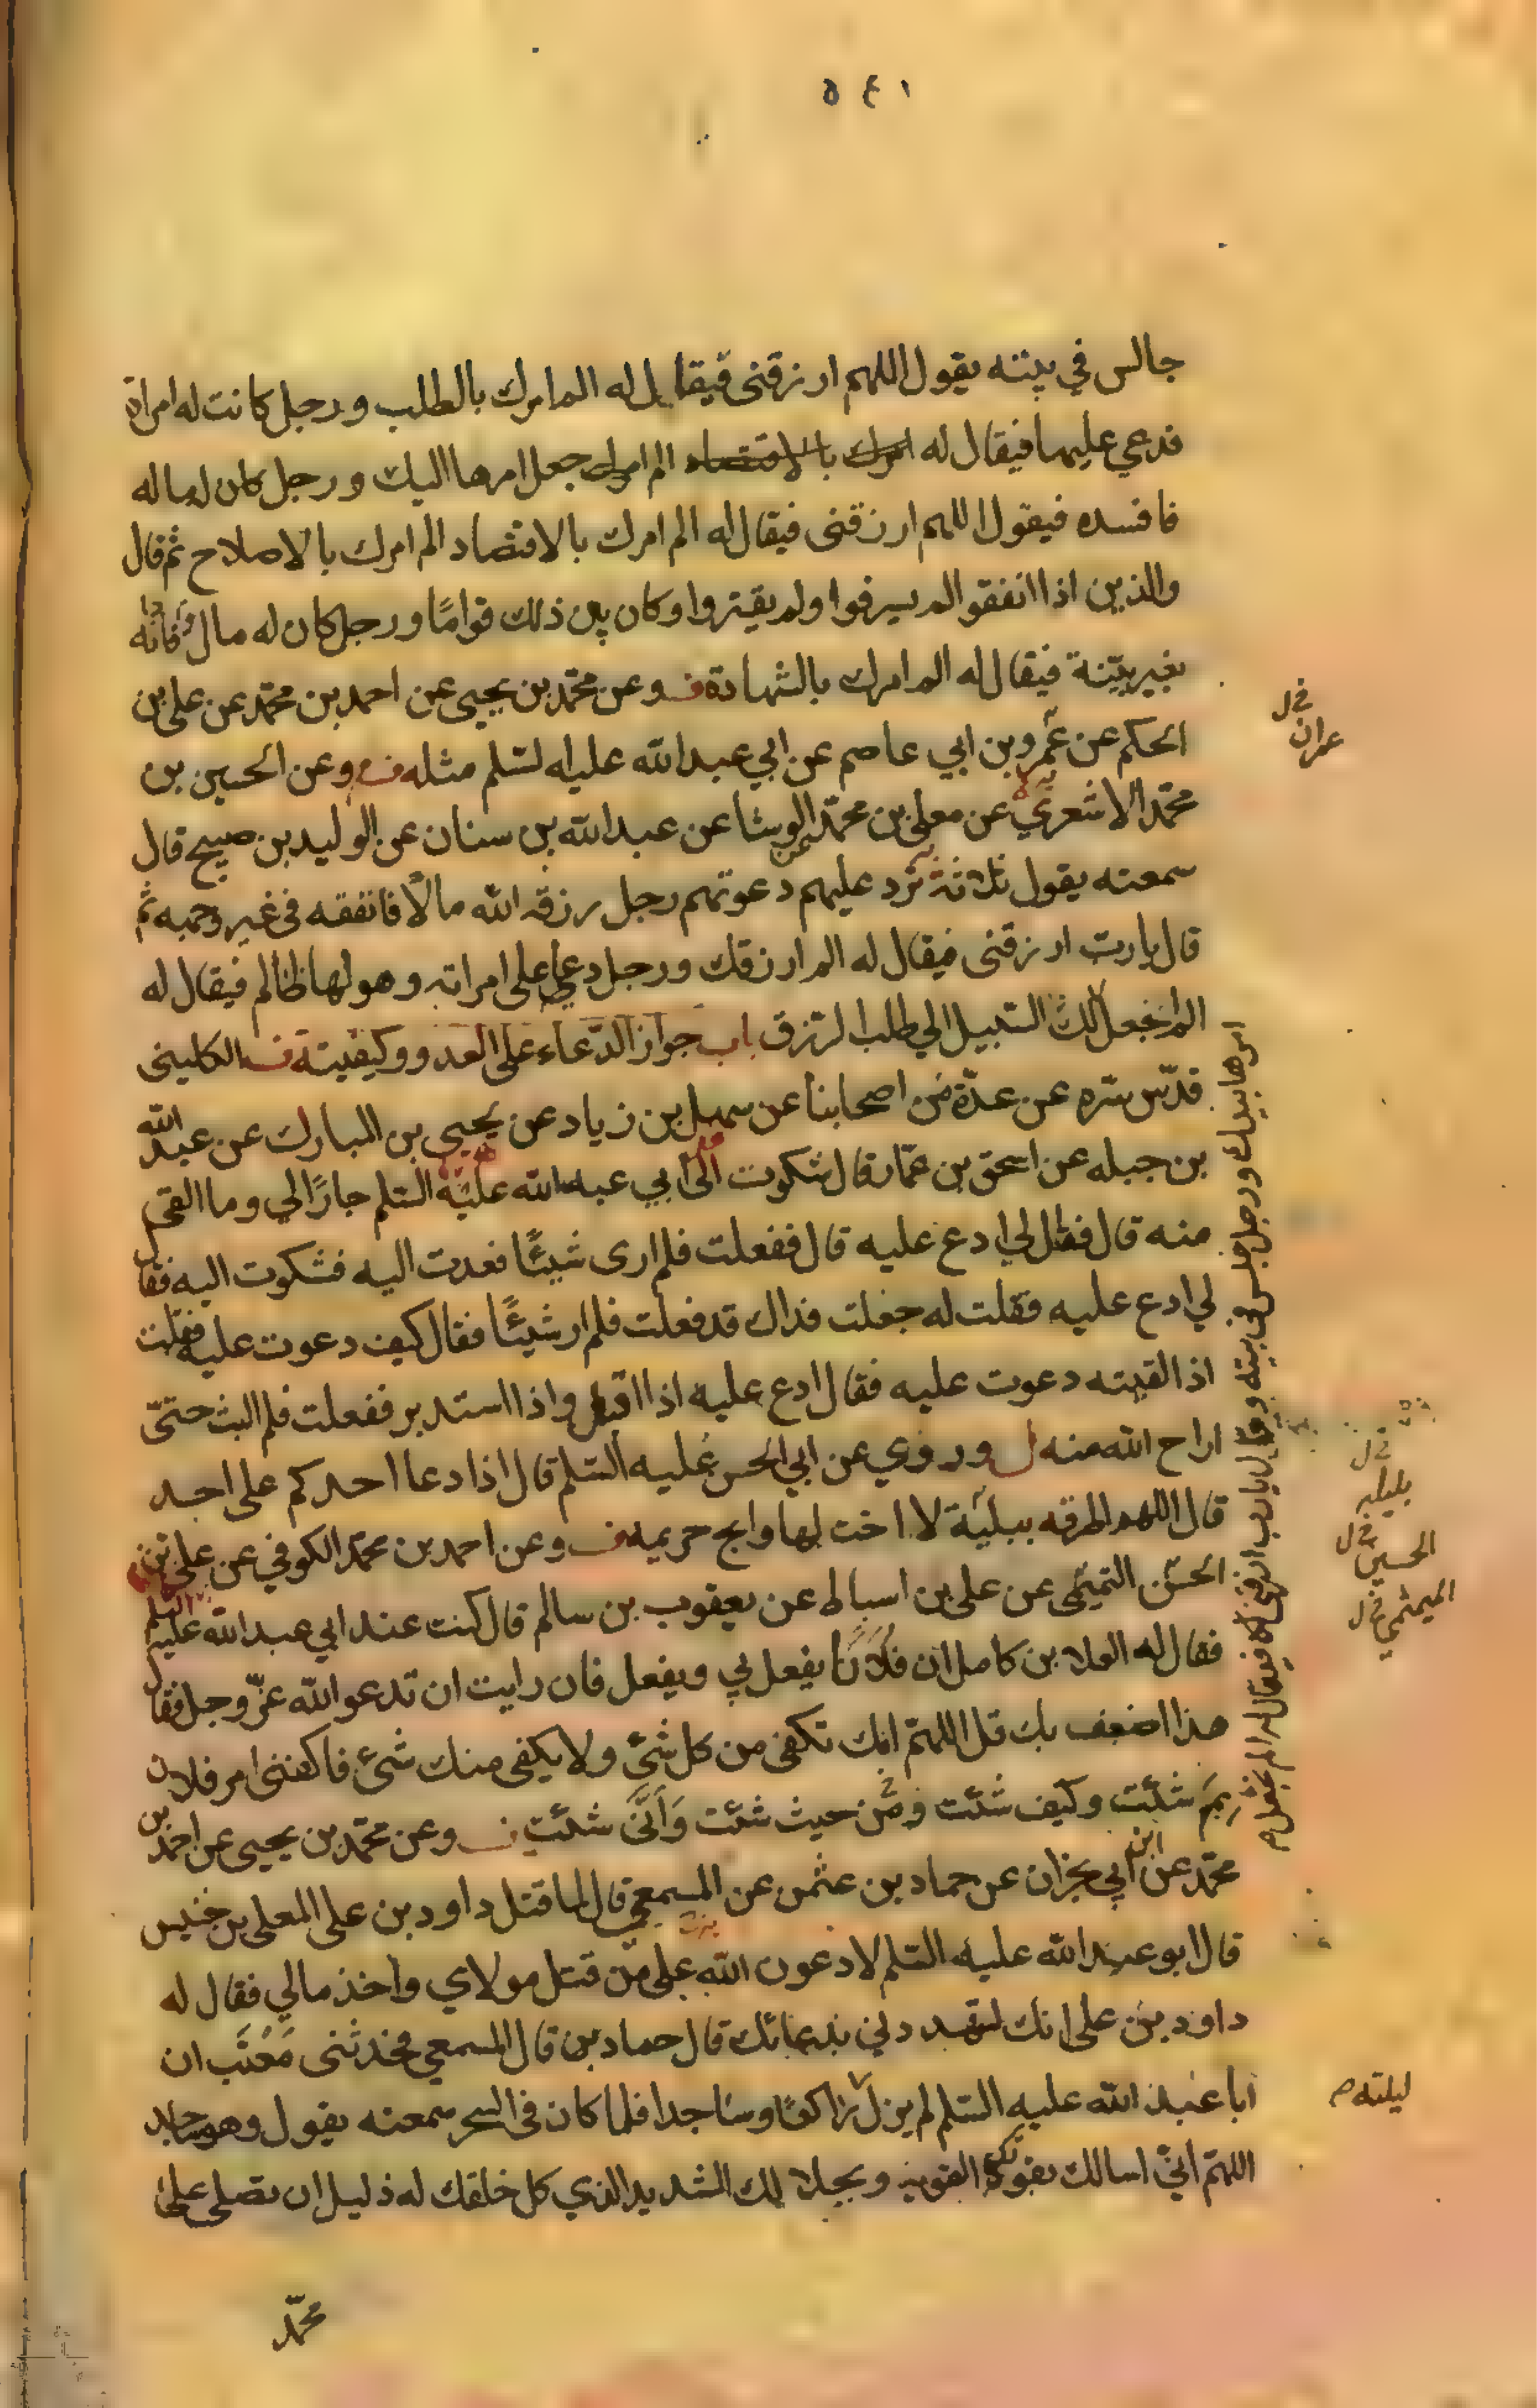 ٥٤١
جالس في بيته يقول اللهم ارزقنى فيقال له الم امرك بالطلب ورجل كانت له امراة
فدعي عليها فيقال له امرك بالاقتصاد الم امرك جعل امرها اليك ورجل كان له ماله
فافسده فيقول اللهم ارزقنى فيقال له الم امرك بالاقتصاد الم امرك بالاصلاح ثم قال
والذين اذا انفقوا لم يسرفوا ولم يقتروا وكان بين ذلك قوامًا ورجل كان له مال فادانه
بغير بيّنة فيقال له الم امرك بالشهادة ف وعن محمّد بن يحيى عن احمد بن محمّد عن على بن
الحكم عن عمرو بن ابي عاصم عن ابي عبد الله عليه السّلم مثله ف وعن الحسين بن
محمّد الاشعري عن معلى بن محمّد عن الوشا عن عبد الله بن سنان عن الوليد بن صبيح قال
سمعته يقول ثلاثة تردّ عليهم دعوتهم رجل رزقه الله مالًا فانفقه في غير وجهه ثم
قال يا ربّ ارزقنى فيقال له الم ارزقك ورجل دعا على امراته وهو لها ظالم فيقال له
الم نجعل لك السّبيل الي طلب الرّزق باب جواز الدّعاء على العدو وكيفيته ف الكلينى
قدّس سرّه عن عدّة من اصحابنا عن سهل بن زياد عن يحيى بن المبارك عن عبد الله
بن جبله عن اسحق بن عمّار قال شكوت الى ابي عبد الله عليه السّلم جارًا لي وما القى
منه قال فقال لي ادع عليه قال ففعلت فلم ارى شيئًا فعدت اليه فشكوت اليه فقال
لي ادع عليه فقلت له جعلت فداك قد فعلت فلم ار شيئًا فقال كيف دعوت عليه فقلت
اذا لقيته دعوت عليه فقال ادع عليه اذا اقبل واذا استدبر ففعلت فلم البث حتىّ
اراح الله منه ل وروي عن ابي الحسن عليه السّلم قال اذا دعا احدكم على احد
قال اللهم اطرقه ببليّة لا اخت لها وابح حريمه ف وعن احمد بن محمّد الكوفي عن على بن
الحسن التميمى عن على بن اسباط عن يعقوب بن سالم قال كنت عند ابي عبد الله عليه السلم
فقال له العلا بن كامل ان فلانًا يفعل بي ويفعل فان رايت ان تدعو الله عزّ وجل فقال
هذا اضعف بك قل اللهمّ انك تكفى من كل شئ ولا يكفى منك شئ فاكفنى امر فلان
بِمَ شئت وكيف شئت ومن حيث شئت وَاَنَّى شئت ف وعن محمّد بن يحيى عن احمد بن
محمّد عن ابن ابي نجران عن حماد بن عثمن عن المسمعي قال لما قتل داود بن على المعلى بن خنيس
قال ابو عبد الله عليه السّلم لادعون الله على من قتل مولاي واخذ مالي فقال له
داود بن على انك لتهددني بدعائك قال حماد بن قال المسمعي فحدثنى مُعَتّب ان
ابا عبد الله عليه السّلم لم يزل راكعًا وساجدا فلما كان في السحر سمعته يقول وهو ساجد
اللهمّ انيّ اسالك بقوتك القوية وبجلالك الشديد الذي كل خلقك له ذليل ان تصلى على
محمّد
في ل
عمران
امرها بيدك ورجل جلس في بيته وقال يا رب ارزقنى فيقال له الم نجعل م
في ل
الحسين في ل
الميثمي في ل
ليلته م